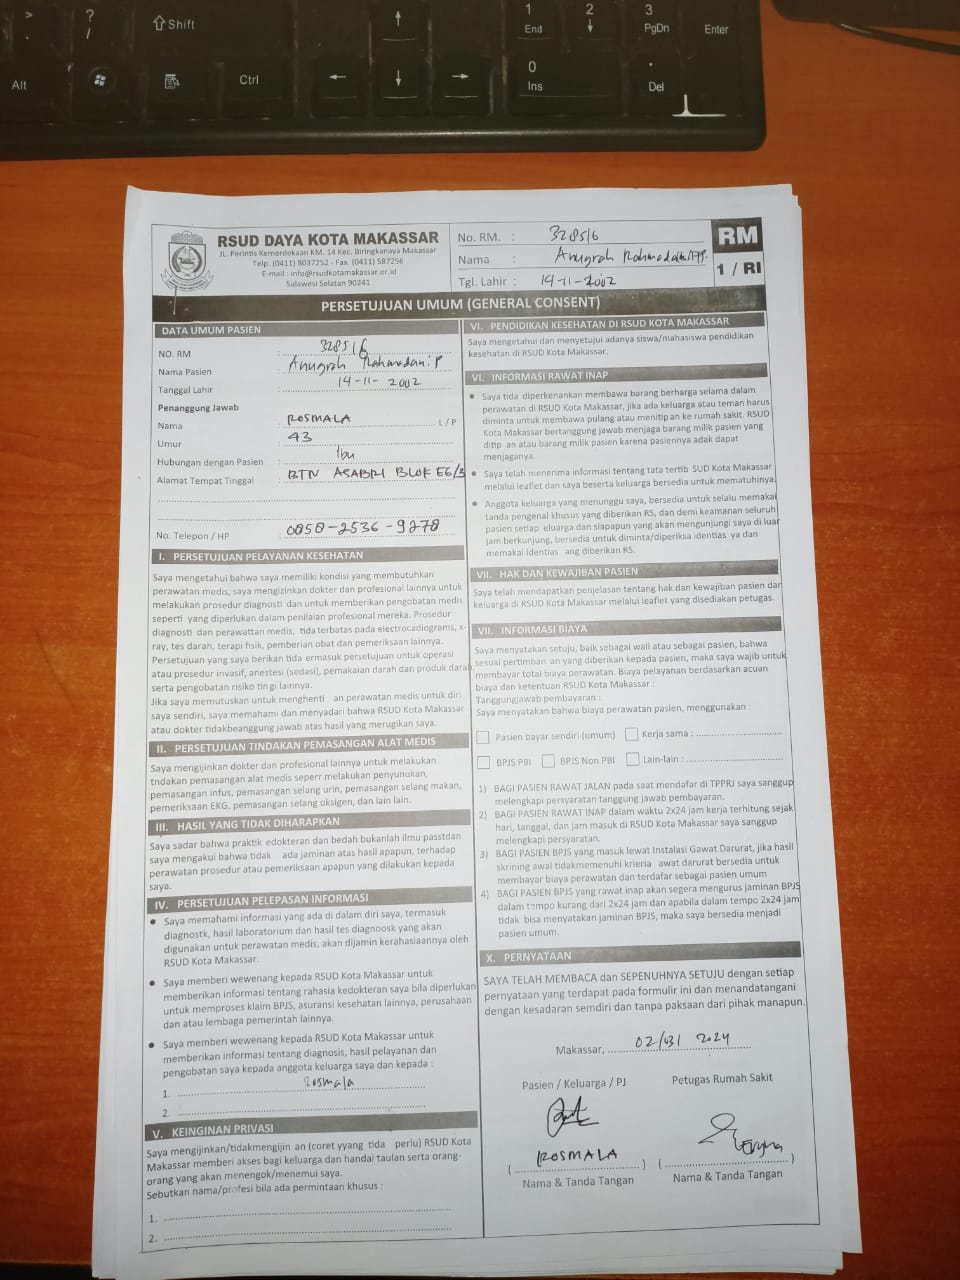 >
.
?
/
Shift
↑
1
End
2
↓
3
PgDn
Enter
Alt
Ctrl
←
↓
→
0
Ins
.
Del
RSUD DAYA KOTA MAKASSAR
JL. Perintis Kemerdekaan KM. 14 Kec. Biringkanaya Makassar
Telp. (0411) 8037252 - Fax. (0411) 587256
E-mail : info@rsudkotamakassar.or.id
Sulawesi Selatan 90241
No. RM. : 328516
Nama : Anugrah
Tgl. Lahir : 14-11-2002
RM
1 / RI
PERSETUJUAN UMUM (GENERAL CONSENT)
DATA UMUM PASIEN
NO. RM : 328516
Nama Pasien : Anugrah Rahmadani.P
Tanggal Lahir : 14-11-2002
Penanggung Jawab
Nama : ROSMALA L / P
Umur : 43
Hubungan dengan Pasien : Ibu
Alamat Tempat Tinggal : BTN ASABRI BLOK E6/3
No. Telepon / HP : 0858-2536-9278
I. PERSETUJUAN PELAYANAN KESEHATAN
Saya mengetahui bahwa saya memiliki kondisi yang membutuhkan
perawatan medis, saya mengizinkan dokter dan profesional lainnya untuk
melakukan prosedur diagnosti dan untuk memberikan pengobatan medis
seperti yang diperlukan dalam penilaian profesional mereka. Prosedur
diagnosti dan perawattan medis, tida terbatas pada electrocadiograms, x-
ray, tes darah, terapi fisik, pemberian obat dan pemeriksaan lainnya.
Persetujuan yang saya berikan tida ermasuk persetujuan untuk operasi
atau prosedur invasif, anestesi (sedasi), pemakaian darah dan produk darah,
serta pengobatan risiko tin gi lainnya.
Jika saya memutuskan untuk menghenti an perawatan medis untuk diri
saya sendiri, saya memahami dan menyadari bahwa RSUD Kota Makassar
atau dokter tidakbeanggung jawab atas hasil yang merugikan saya.
II. PERSETUJUAN TINDAKAN PEMASANGAN ALAT MEDIS
Saya mengijinkan dokter dan profesional lainnya untuk melakukan
tndakan pemasangan alat medis seperr melakukan penyunukan,
pemasangan infus, pemasangan selang urin, pemasangan selang makan,
pemeriksaan EKG, pemasangan selang oksigen, dan lain lain.
III. HASIL YANG TIDAK DIHARAPKAN
Saya sadar bahwa praktik edokteran dan bedah bukanlah ilmu passtdan
saya mengakui bahwa tidak ada jaminan atas hasil apapun, terhadap
perawatan prosedur atau pemeriksaan apapun yang dilakukan kepada
saya.
IV. PERSETUJUAN PELEPASAN INFORMASI
• Saya memahami informasi yang ada di dalam diri saya, termasuk
diagnostk, hasil laboratorium dan hasil tes diagnoosk yang akan
digunakan untuk perawatan medis, akan dijamin kerahasiaannya oleh
RSUD Kota Makassar.
• Saya memberi wewenang kepada RSUD Kota Makassar untuk
memberikan informasi tentang rahasia kedokteran saya bila diperlukan
untuk memproses klaim BPJS, asuransi kesehatan lainnya, perusahaan
dan atau lembaga pemerintah lainnya.
• Saya memberi wewenang kepada RSUD Kota Makassar untuk
memberikan informasi tentang diagnosis, hasil pelayanan dan
pengobatan saya kepada anggota keluarga saya dan kepada :
1. Rosmala
2.
V. KEINGINAN PRIVASI
Saya mengijinkan/tidakmengijin an (coret yyang tida perlu) RSUD Kota
Makassar memberi akses bagi keluarga dan handai taulan serta orang-
orang yang akan menengok/menemui saya.
Sebutkan nama/profesi bila ada permintaan khusus :
1.
2.
VI. PENDIDIKAN KESEHATAN DI RSUD KOTA MAKASSAR
Saya mengetahui dan menyetujui adanya siswa/mahasiswa pendidikan
kesehatan di RSUD Kota Makassar.
VI. INFORMASI RAWAT INAP
• Saya tida diperkenankan membawa barang berharga selama dalam
perawatan di RSUD Kota Makassar, jika ada keluarga atau teman harus
diminta untuk membawa pulang atau menitip an ke rumah sakit. RSUD
Kota Makassar bertanggung jawab menjaga barang milik pasien yang
ditip an atau barang milik pasien karena pasiennya adak dapat
menjaganya.
• Saya telah menerima informasi tentang tata tertib SUD Kota Makassar
melalui leaflet dan saya beserta keluarga bersedia untuk mematuhinya.
• Anggota keluarga yang menunggu saya, bersedia untuk selalu memakai
tanda pengenal khusus yang diberikan RS, dan demi keamanan seluruh
pasien setiap eluarga dan siapapun yang akan mengunjungi saya di luar
jam berkunjung, bersedia untuk diminta/diperiksa identias ya dan
memakai identias ang diberikan RS.
VII. HAK DAN KEWAJIBAN PASIEN
Saya telah mendapatkan penjelasan tentang hak dan kewajiban pasien dan
keluarga di RSUD Kota Makassar melalui leaflet yang disediakan petugas.
VII. INFORMASI BIAYA
Saya menyatakan setuju, baik sebagai wali atau sebagai pasien, bahwa
sesuai pertimban an yang diberikan kepada pasien, maka saya wajib untuk
membayar total biaya perawatan. Biaya pelayanan berdasarkan acuan
biaya dan ketentuan RSUD Kota Makassar :
Tanggungjawab pembayaran :
Saya menyatakan bahwa biaya perawatan pasien, menggunakan :
Pasien bayar sendiri (umum) Kerja sama :
BPJS PBI BPJS Non PBI Lain-lain :
1) BAGI PASIEN RAWAT JALAN pada saat mendafar di TPPRJ saya sanggup
melengkapi persyaratan tanggung jawab pembayaran.
2) BAGI PASIEN RAWAT INAP dalam waktu 2x24 jam kerja terhitung sejak
hari, tanggal, dan jam masuk di RSUD Kota Makassar saya sanggup
melengkapi persyaratan.
3) BAGI PASIEN BPJS yang masuk lewat Instalasi Gawat Darurat, jika hasil
skrining awal tidakmemenuhi krieria awat darurat bersedia untuk
membayar biaya perawatan dan terdafar sebagai pasien umum
4) BAGI PASIEN BPJS yang rawat inap akan segera mengurus jaminan BPJS
dalam tempo kurang dari 2x24 jam dan apabila dalam tempo 2x24 jam
tidak bisa menyatakan jaminan BPJS, maka saya bersedia menjadi
pasien umum.
X. PERNYATAAN
SAYA TELAH MEMBACA dan SEPENUHNYA SETUJU dengan setiap
pernyataan yang terdapat pada formulir ini dan menandatangani
dengan kesadaran semdiri dan tanpa paksaan dari pihak manapun.
Makassar, 02/03/ 2024
Pasien / Keluarga / PJ Petugas Rumah Sakit
( ROSMALA ) ( )
Nama & Tanda Tangan Nama & Tanda Tangan